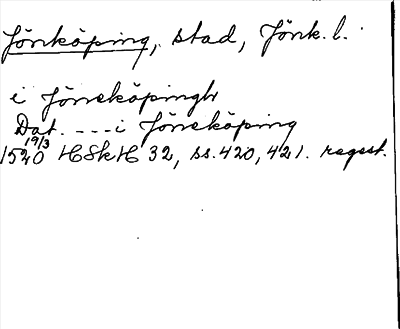 Jönköping, stad, Jönk. l.
i Jöneköpingh
Dat. --- i Jöneköping
1520 19/3 HSkH 32, ss. 420, 421. regest.